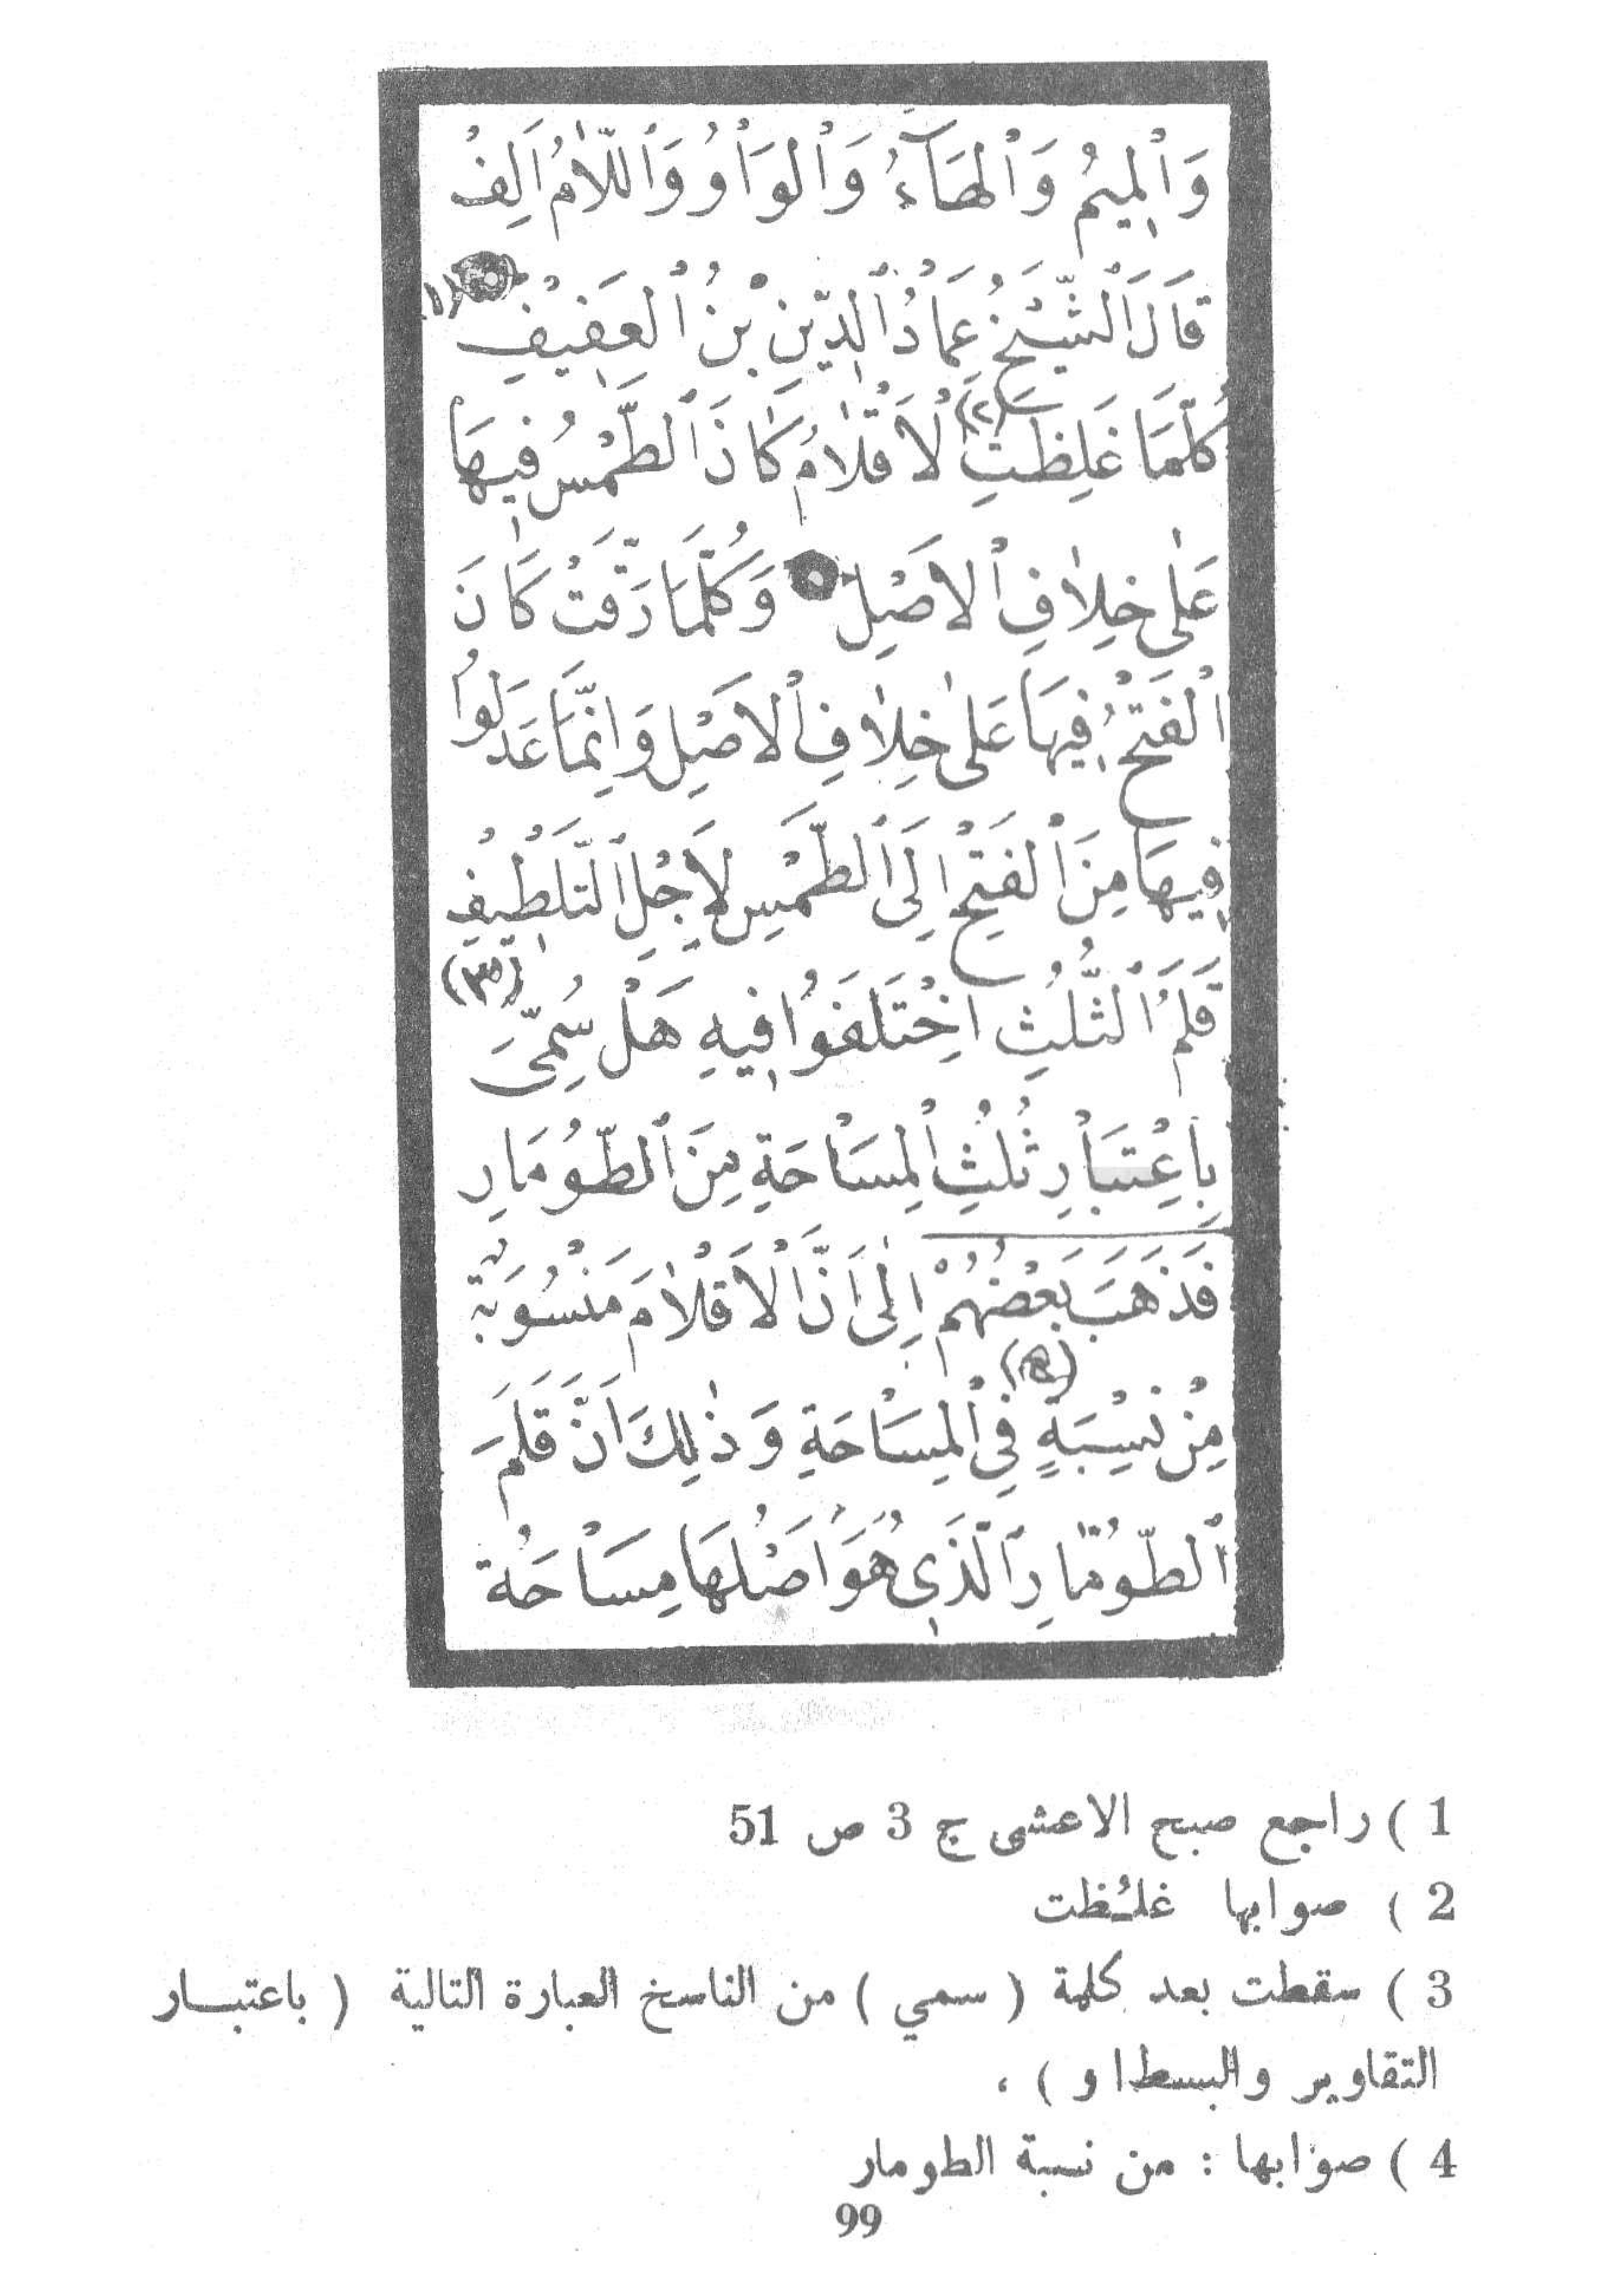 وَالمِيمُ وَالهَاءُ وَالوَاوُ وَاللَّامُ اَلِفْ
قَالَ الشَّيْخُ عِمَادُ الدِّينِ بْنُ العَفِيفِ (١)
كُلَّمَا غَلِظَتِ (٢) لاَقْلَامُ كَانَ الطَّمْسُ فِيهَا
عَلَى خِلَافِ الاَصْلِ وَكُلَّمَا رَقَّتْ كَانَ
الْفَتْحُ فِيهَا عَلَى خِلَافِ الاَصْلِ وَاِنَّمَا عَدَلُوا
فِيهَا مِنَ الْفَتْحِ اِلَى الطَّمْسِ لِاَجْلِ التَّلْطِيفِ
قَلَمُ الثُّلُثِ اخْتَلَفُوا فِيهِ هَلْ سُمِّىَ (٣)
بِاعْتِبَارِ ثُلُثِ الْمِسَاحَةِ مِنَ الطُّومَارِ
فَذَهَبَ بَعْضُهُمْ اِلَى اَنَّ الْاَقْلَامَ مَنْسُوبَةٌ
مِنْ نِسْبَةٍ (٤) فِي الْمِسَاحَةِ وَذٰلِكَ اَنَّ قَلَمَ
الطُّومَارِ الَّذِي هُوَ اَصْلُهَا مِسَاحَةُ
1 ) راجع صبح الاعشى ج 3 ص 51
2 ) صوابها غلـُظت
3 ) سقطت بعد كلمة ( سمي ) من الناسخ العبارة التالية ( باعتبـــار
التقاوير والبسط او ) .
4 ) صوابها : من نسبة الطومار
99